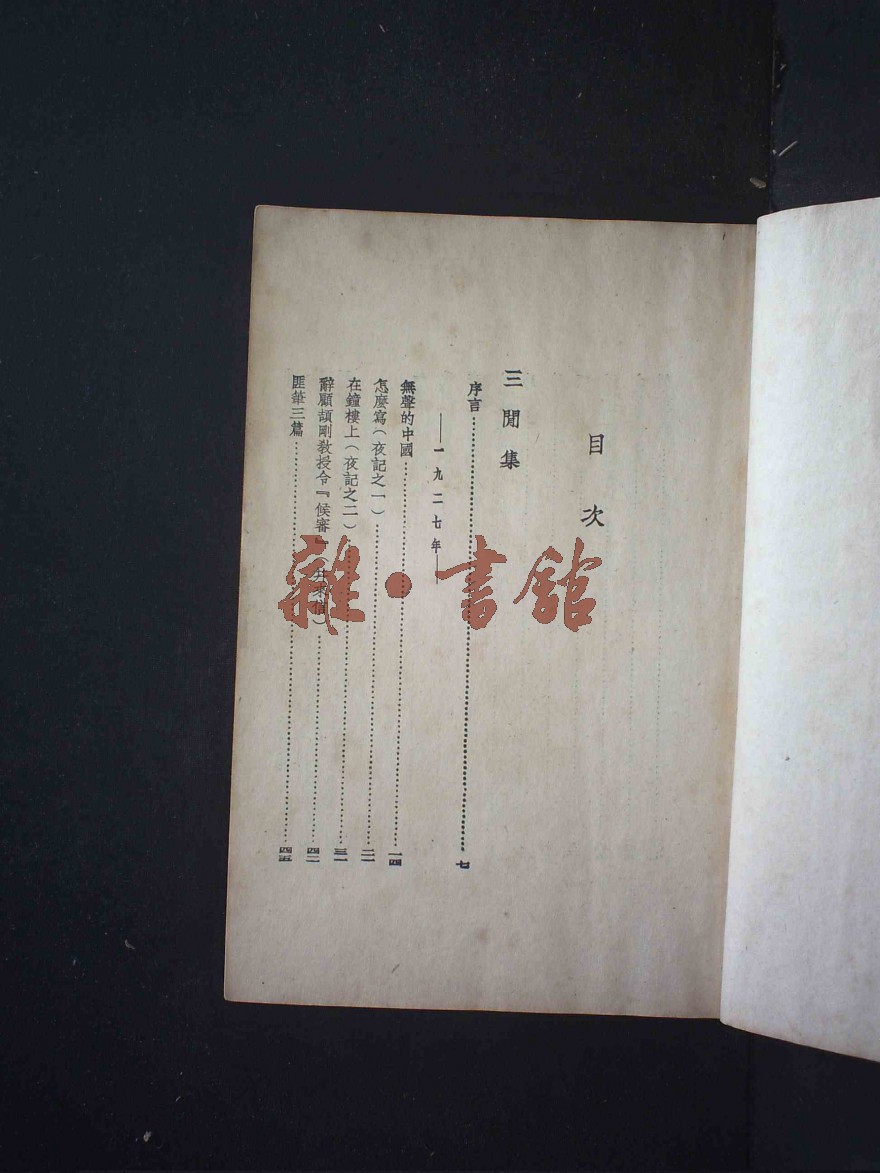 目次
三閒集
序言……七
——一九二七年——
無聲的中國……一四
怎麼寫(夜記之一)……二一
在鐘樓上(夜記之二)……三一
辭顧頡剛教授令『候審』(并來信)……四二
匪筆三篇……四五
雜·書館